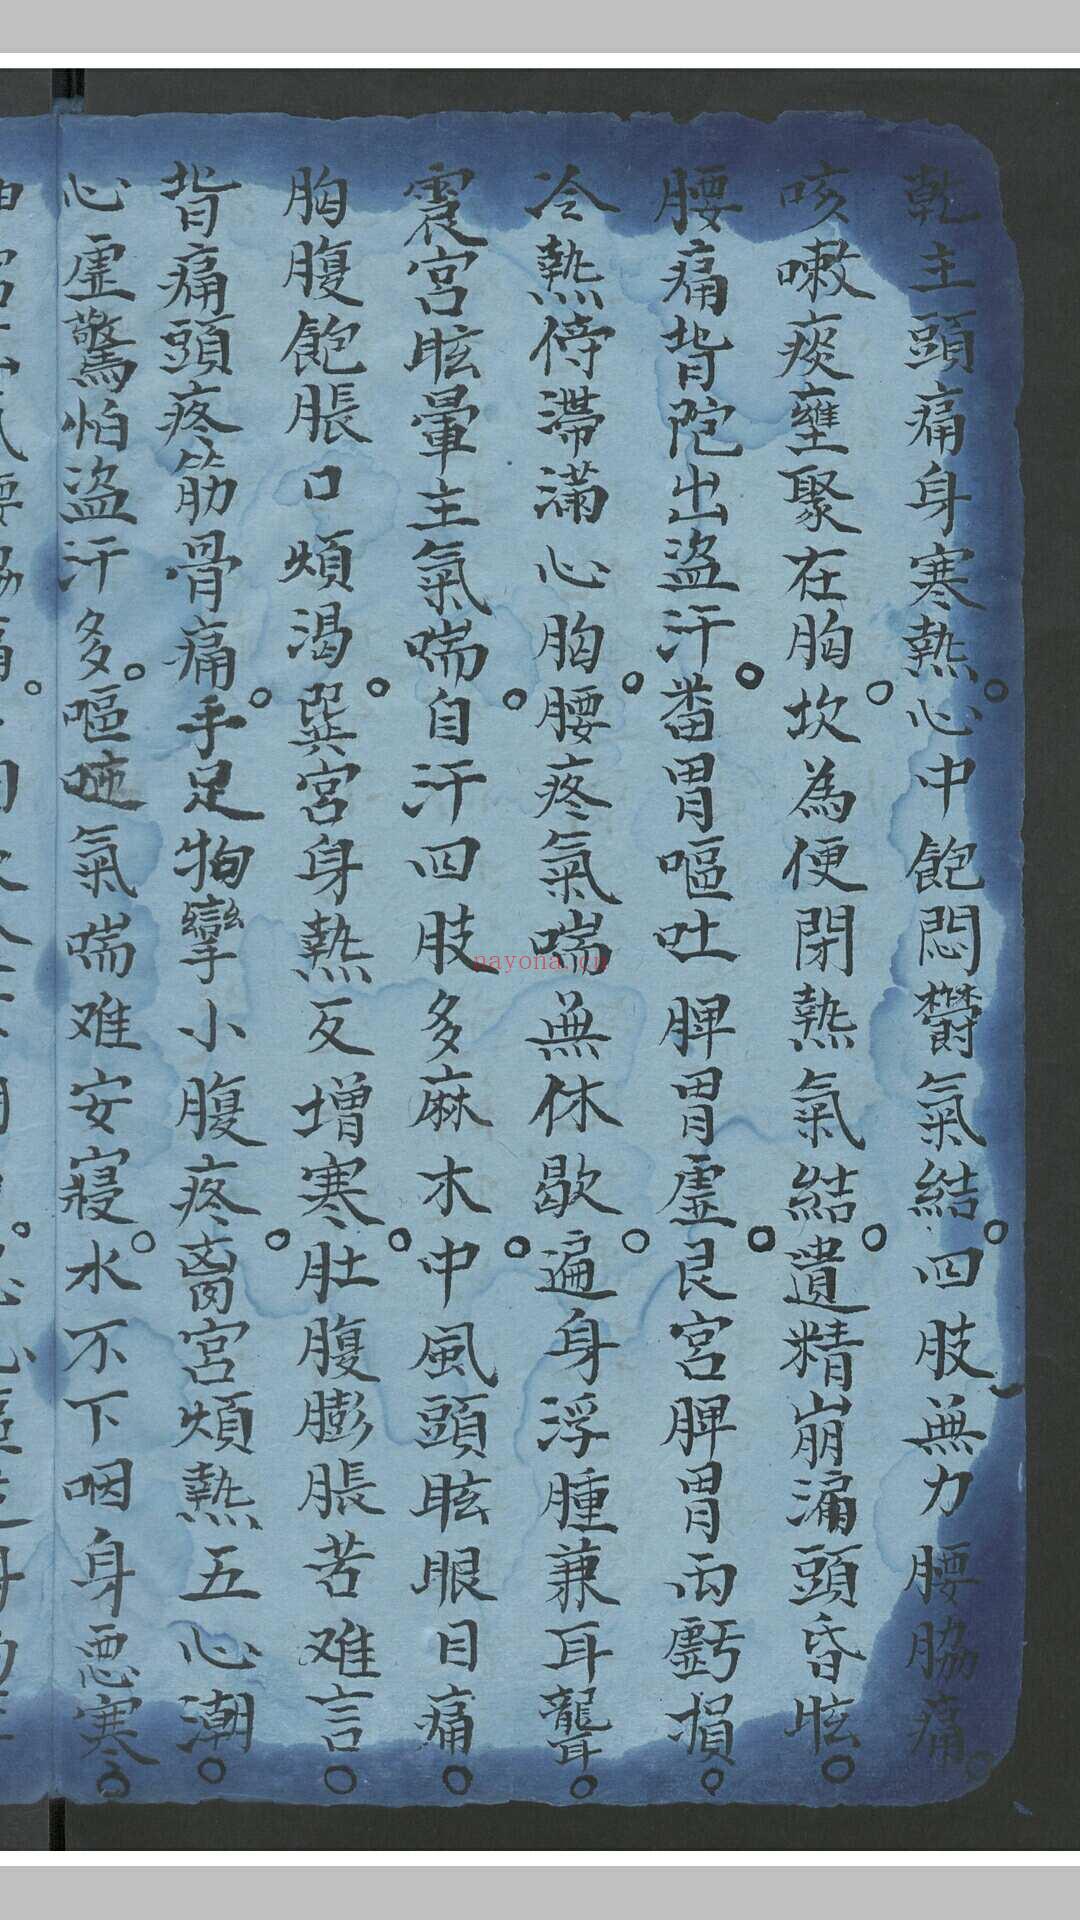 乾主頭痛身寒熱。心中飽悶鬱氣結。四肢無力腰脇痛。
咳嗽痰壅聚在胸。坎為便閉熱氣結。遺精崩漏頭昏眩。
腰痛背陀出盗汗。番胃嘔吐脾胃虛。艮宮脾胃両虧損。
冷熱停滯滿心胸。腰疼氣喘無休歇。遍身浮腫兼耳聾。
震宮眩暈主氣喘。自汗四肢多麻木。中風頭眩眼目痛。
胸腹飽脹口煩渴。巽宮身熱反增寒。肚腹膨脹苦难言。
背痛頭疼筋骨痛。手足拘攣小腹疼。离宮煩熱五心潮。
心虛驚怕盗汗多。嘔吐氣喘难安寢。水不下咽身悪寒。
nayona.cn